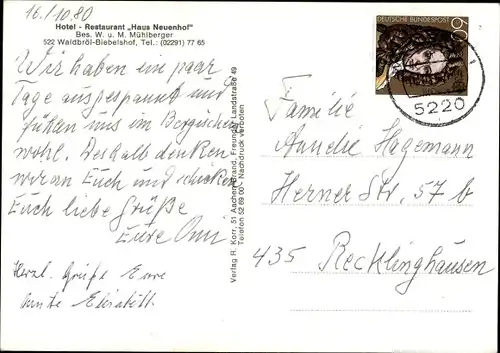 16.10.80
Hotel - Restaurant „Haus Neuenhof"
Bes. W. u. M. Mühlberger
522 Waldbröl-Biebelshof, Tel.: (02291) 77 65
Wir haben ein paar
Tage ausgespannt und
fühlen uns im Bergischen
wohl. Deshalb denken
wir an Euch und schicken
Euch liebe Grüße
Eure Omi
Herzl. Grüße Eure
Tante
Verlag R. Korr, 51 Aachen-Brand, Freunder Landstraße 49
Telefon 52 69 00 - Nachdruck verboten
DEUTSCHE BUNDESPOST
60
5220
Familie
Hagemann
Herner Str. 57 b
435 Recklinghausen